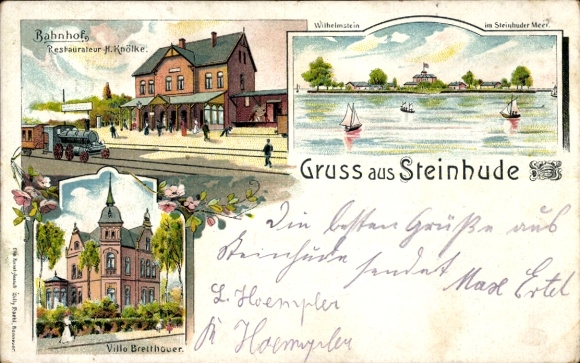 Bahnhof,
Restaurateur H. Knölke.
Wilhelmstein im Steinhuder Meer.
Gruss aus Steinhude
Die besten Grüße aus
Steinhude sendet Max Ertel
L. Hoempler
Hoempler
Villa Bretthauer.